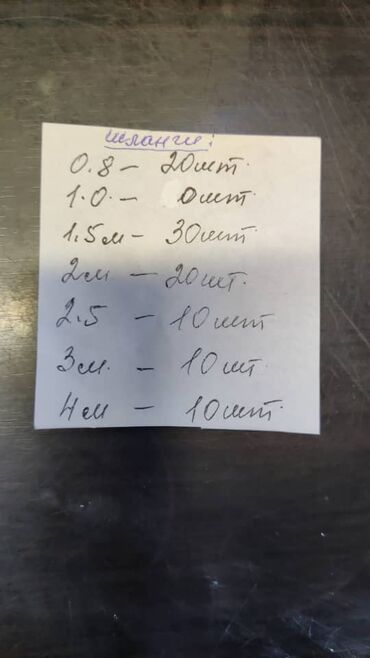 шланги:
0.8 – 20шт.
1.0. – 0шт.
1.5м – 30шт
2м – 20шт.
2.5 – 10шт
3м. – 10шт.
4м – 10шт.